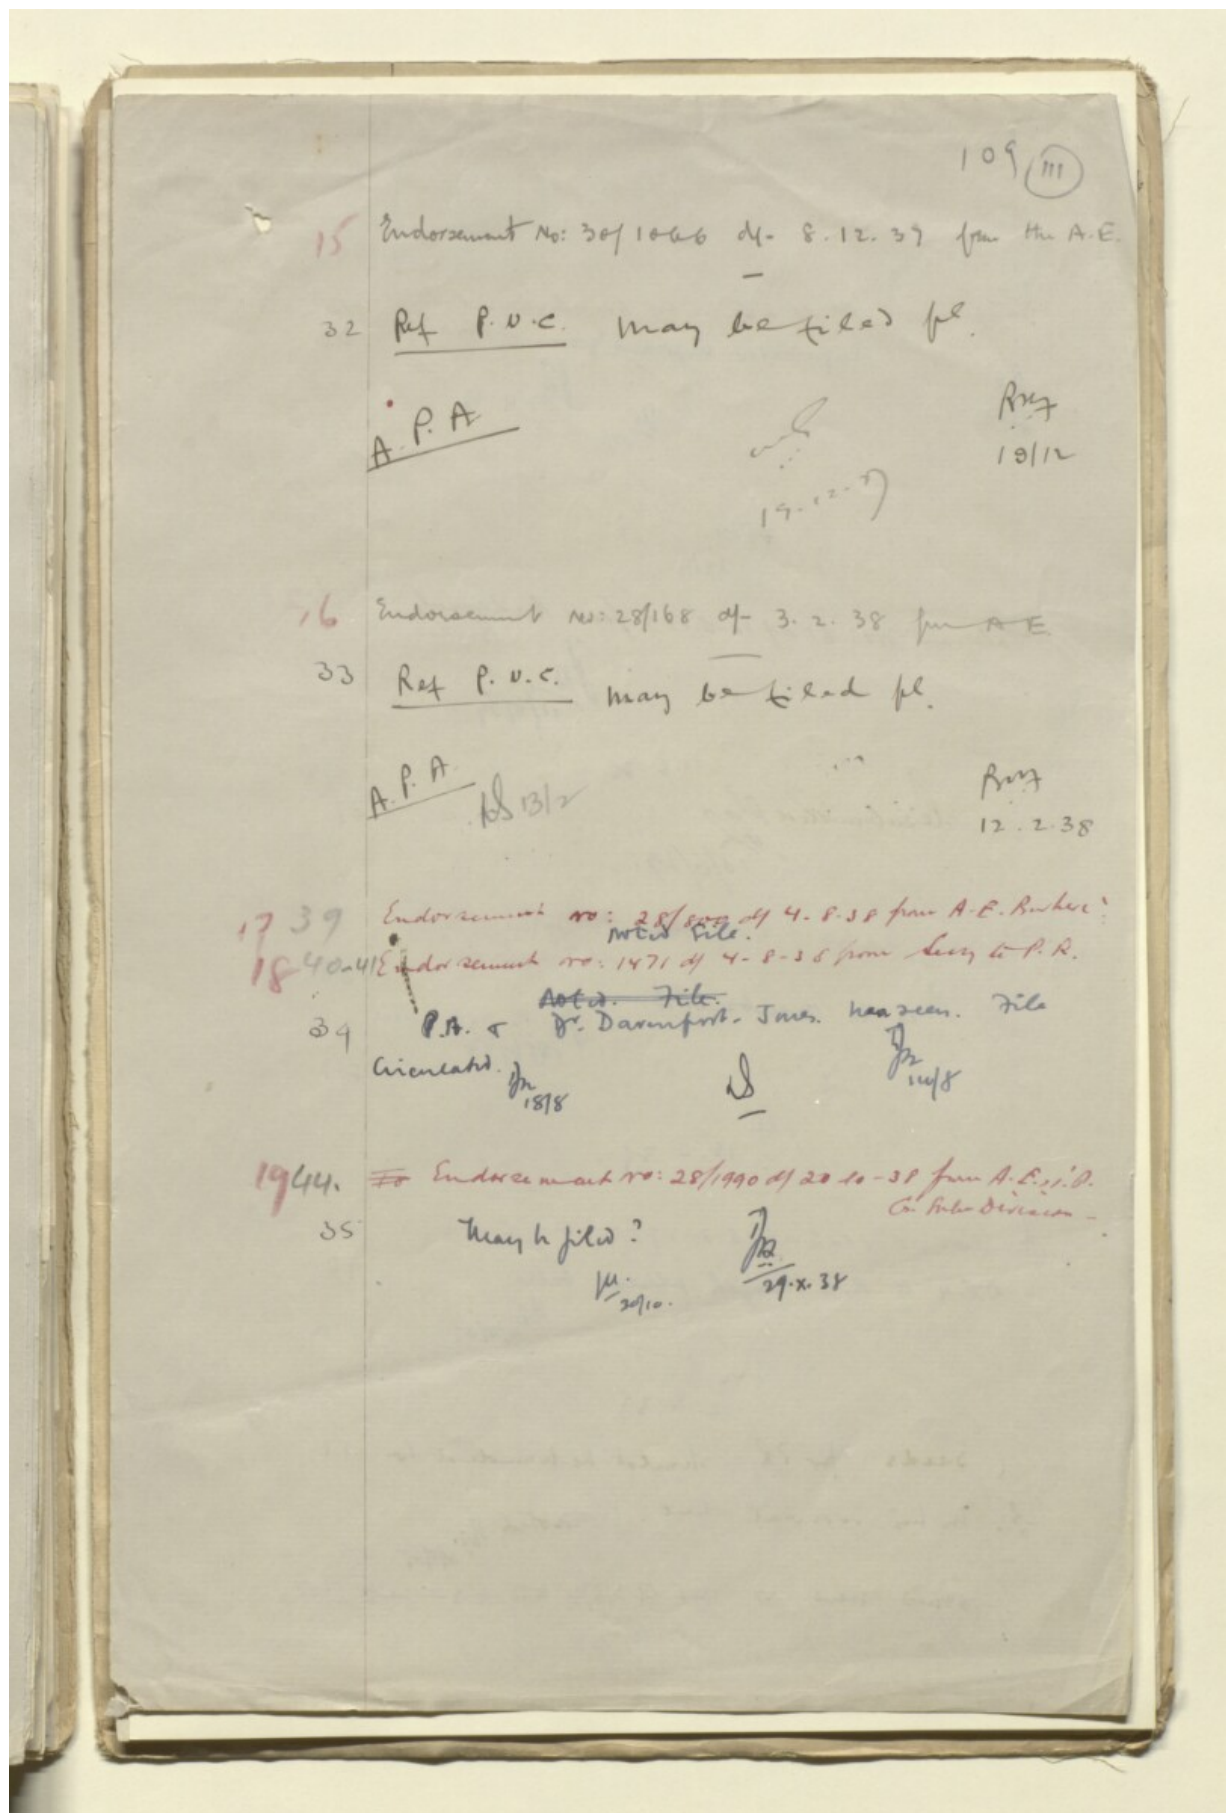 109 111
15 Endorsement No: 30/1066 d/- 8.12.37 from the A.E.
32 Ref P.U.C. may be filed pl.
A.P.A
19/12
19-12-37
16 Endorsement No: 28/168 d/- 3.2.38 from A E
33 Ref P.U.C. may be filed pl.
A.P.A. 13/2
12.2.38
17 39 Endorsement no: 28/ d/ 4-8-38 from A.E.
Noted File.
18 40-41 Endorsement no: 1471 d/ 4-8-38 from Secy to P.R.
Noted. File.
34 P.A. & Dr. Davenport-Jones has seen. File
Circulated.
18/8
19 44. Endorsement no: 28/1990 d/ 20-10-38 from A.E.
Sub Division
35 May be filed?
29.X.38
20/10.